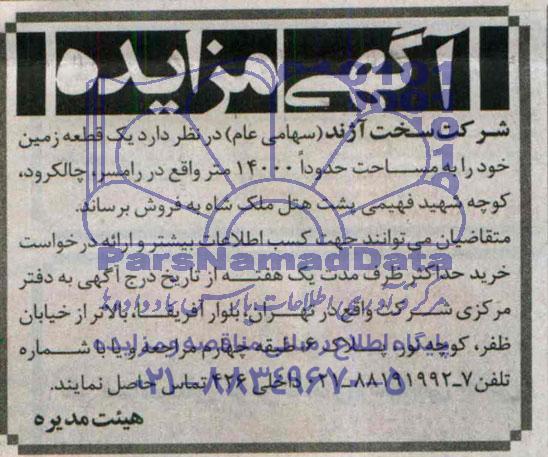 آگهی مزایده
شرکت سخت آژند (سهامی عام) در نظر دارد یک قطعه زمین
خود را به مساحت حدوداً ۱۴۰۰۰ متر واقع در رامسر، چالکرود،
کوچه شهید فهیمی پشت هتل ملک شاه به فروش برساند.
متقاضیان می‌توانند جهت کسب اطلاعات بیشتر و ارائه درخواست
ParsNamadData
خرید حداکثر ظرف مدت یک هفته از تاریخ درج آگهی به دفتر
مرکزی شرکت واقع در تهران، بلوار آفریقا، بالاتر از خیابان
ظفر، کوچه نور، پلاک ۶، طبقه چهارم مراجعه و یا با شماره
پایگاه اطلاع رسانی مناقصه و مزایده
تلفن ۷-۸۸۱۹۱۹۹۲-۰۲۱ داخلی ۴۲۶ تماس حاصل نمایند.
۰۲۱-۸۸۳۴۹۶۷۰-۵
هیئت مدیره